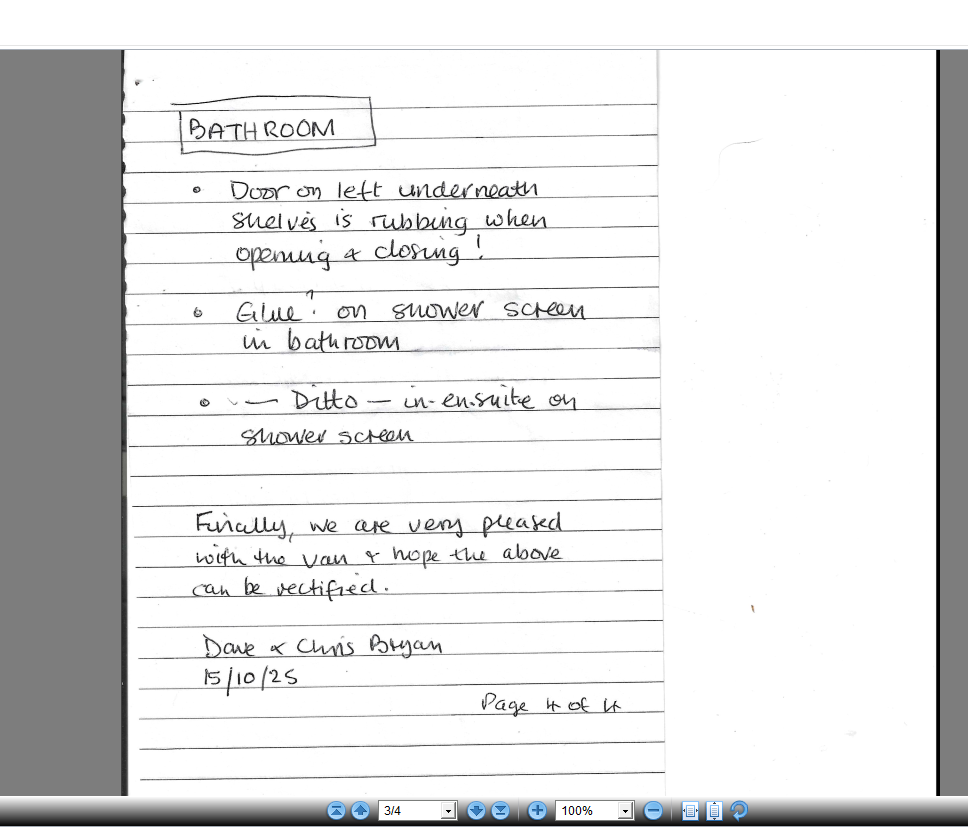 BATHROOM
• Door on left underneath
shelves is rubbing when
opening & closing!
• Glue? on shower screen
in bathroom
• — Ditto — in en.suite on
shower screen
Finally, we are very pleased
with the van & hope the above
can be rectified.
Dave & Chris Bryan
15/10/25
Page 4 of 4
3/4
100%